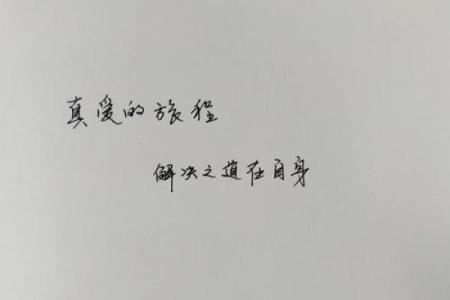 真爱的旅程
解决之道在自身